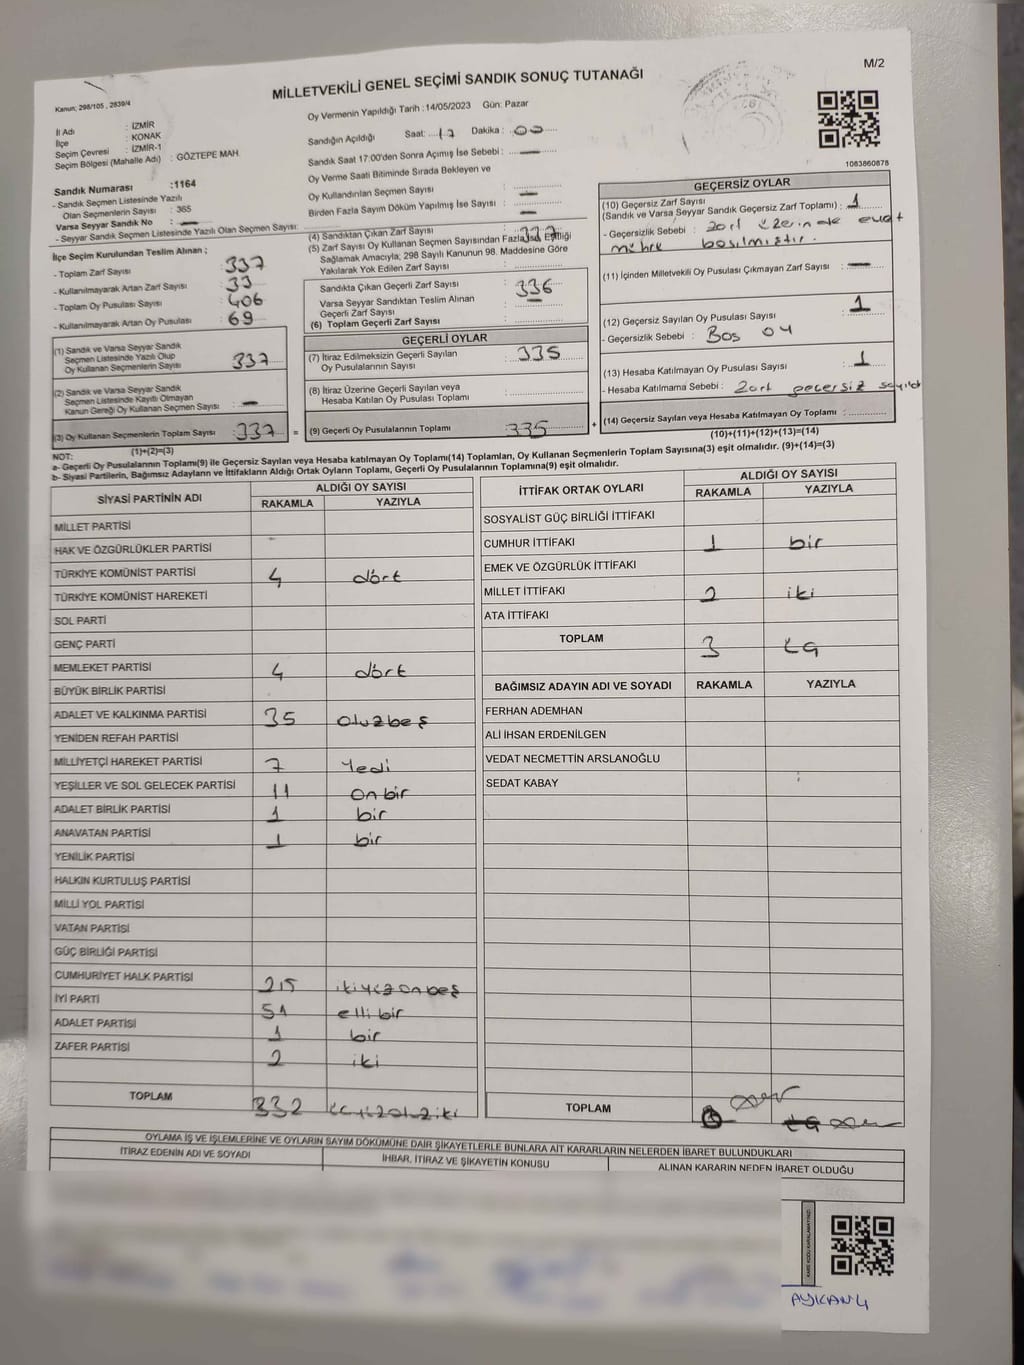 M/2
MİLLETVEKİLİ GENEL SEÇİMİ SANDIK SONUÇ TUTANAĞI
Kanun; 298/105 , 2839/4
İl Adı : İZMİR
İlçe : KONAK
Seçim Çevresi : İZMİR-1
Seçim Bölgesi (Mahalle Adı) : GÖZTEPE MAH.
Sandık Numarası :1164
- Sandık Seçmen Listesinde Yazılı
Olan Seçmenlerin Sayısı : 365
Varsa Seyyar Sandık No : —
- Seyyar Sandık Seçmen Listesinde Yazılı Olan Seçmen Sayısı:
Oy Vermenin Yapıldığı Tarih : 14/05/2023 Gün: Pazar
Sandığın Açıldığı Saat: 17 Dakika : 00
Sandık Saat 17:00'den Sonra Açımış İse Sebebi : —
Oy Verme Saati Bitiminde Sırada Bekleyen ve
Oy Kullandırılan Seçmen Sayısı : —
Birden Fazla Sayım Döküm Yapılmış İse Sayısı : —
1083860878
İlçe Seçim Kurulundan Teslim Alınan ;
- Toplam Zarf Sayısı : 337
- Kullanılmayarak Artan Zarf Sayısı : 33
- Toplam Oy Pusulası Sayısı : 406
- Kullanılmayarak Artan Oy Pusulası : 69
(1) Sandık ve Varsa Seyyar Sandık
Seçmen Listesinde Yazılı Olup
Oy Kullanan Seçmenlerin Sayısı : 337
(2) Sandık ve Varsa Seyyar Sandık
Seçmen Listesinde Kayıtlı Olmayan
Kanun Gereği Oy Kullanan Seçmen Sayısı : —
(3) Oy Kullanan Seçmenlerin Toplam Sayısı : 337 =
(1)+(2)=(3)
(4) Sandıktan Çıkan Zarf Sayısı : 337
(5) Zarf Sayısı Oy Kullanan Seçmen Sayısından Fazla ise, Eşitliği
Sağlamak Amacıyla; 298 Sayılı Kanunun 98. Maddesine Göre
Yakılarak Yok Edilen Zarf Sayısı :
Sandıkta Çıkan Geçerli Zarf Sayısı : 336
Varsa Seyyar Sandıktan Teslim Alınan
Geçerli Zarf Sayısı : —
(6) Toplam Geçerli Zarf Sayısı :
GEÇERLİ OYLAR
(7) İtiraz Edilmeksizin Geçerli Sayılan
Oy Pusulalarının Sayısı : 335
(8) İtiraz Üzerine Geçerli Sayılan veya
Hesaba Katılan Oy Pusulası Toplamı :
(9) Geçerli Oy Pusulalarının Toplamı 335 +
GEÇERSİZ OYLAR
(10) Geçersiz Zarf Sayısı
(Sandık ve Varsa Seyyar Sandık Geçersiz Zarf Toplamı) : 1
- Geçersizlik Sebebi : zarf üzerinde evet
mühre basılmıştır.
(11) İçinden Milletvekili Oy Pusulası Çıkmayan Zarf Sayısı : —
(12) Geçersiz Sayılan Oy Pusulası Sayısı : 1
- Geçersizlik Sebebi : Boş oy
(13) Hesaba Katılmayan Oy Pusulası Sayısı : 1
- Hesaba Katılmama Sebebi : zarf geçersiz sayıldı
(14) Geçersiz Sayılan veya Hesaba Katılmayan Oy Toplamı :
(10)+(11)+(12)+(13)=(14)
NOT:
a- Geçerli Oy Pusulalarının Toplamı(9) ile Geçersiz Sayılan veya Hesaba katılmayan Oy Toplamı(14) Toplamları, Oy Kullanan Seçmenlerin Toplam Sayısına(3) eşit olmalıdır. (9)+(14)=(3)
b- Siyasi Partilerin, Bağımsız Adayların ve İttifakların Aldığı Ortak Oyların Toplamı, Geçerli Oy Pusulalarının Toplamına(9) eşit olmalıdır.
SİYASİ PARTİNİN ADI ALDIĞI OY SAYISI
RAKAMLA YAZIYLA
MİLLET PARTİSİ
HAK VE ÖZGÜRLÜKLER PARTİSİ
TÜRKİYE KOMÜNİST PARTİSİ 4 dört
TÜRKİYE KOMÜNİST HAREKETİ
SOL PARTİ
GENÇ PARTİ
MEMLEKET PARTİSİ 4 dört
BÜYÜK BİRLİK PARTİSİ
ADALET VE KALKINMA PARTİSİ 35 otuzbeş
YENİDEN REFAH PARTİSİ
MİLLİYETÇİ HAREKET PARTİSİ 7 Yedi
YEŞİLLER VE SOL GELECEK PARTİSİ 11 on bir
ADALET BİRLİK PARTİSİ 1 bir
ANAVATAN PARTİSİ 1 bir
YENİLİK PARTİSİ
HALKIN KURTULUŞ PARTİSİ
MİLLİ YOL PARTİSİ
VATAN PARTİSİ
GÜÇ BİRLİĞİ PARTİSİ
CUMHURİYET HALK PARTİSİ 215 ikiyüzonbeş
İYİ PARTİ 51 elli bir
ADALET PARTİSİ 1 bir
ZAFER PARTİSİ 2 iki
TOPLAM 332 üçyüzotuziki
İTTİFAK ORTAK OYLARI ALDIĞI OY SAYISI
RAKAMLA YAZIYLA
SOSYALİST GÜÇ BİRLİĞİ İTTİFAKI
CUMHUR İTTİFAKI 1 bir
EMEK VE ÖZGÜRLÜK İTTİFAKI
MİLLET İTTİFAKI 2 iki
ATA İTTİFAKI
TOPLAM 3 üç
BAĞIMSIZ ADAYIN ADI VE SOYADI RAKAMLA YAZIYLA
FERHAN ADEMHAN
ALİ İHSAN ERDENİLGEN
VEDAT NECMETTİN ARSLANOĞLU
SEDAT KABAY
TOPLAM
OYLAMA İŞ VE İŞLEMLERİNE VE OYLARIN SAYIM DÖKÜMÜNE DAİR ŞİKAYETLERLE BUNLARA AİT KARARLARIN NELERDEN İBARET BULUNDUKLARI
İTİRAZ EDENİN ADI VE SOYADI İHBAR, İTİRAZ VE ŞİKAYETİN KONUSU ALINAN KARARIN NEDEN İBARET OLDUĞU
KARE KODU KARALAMAYINIZ!